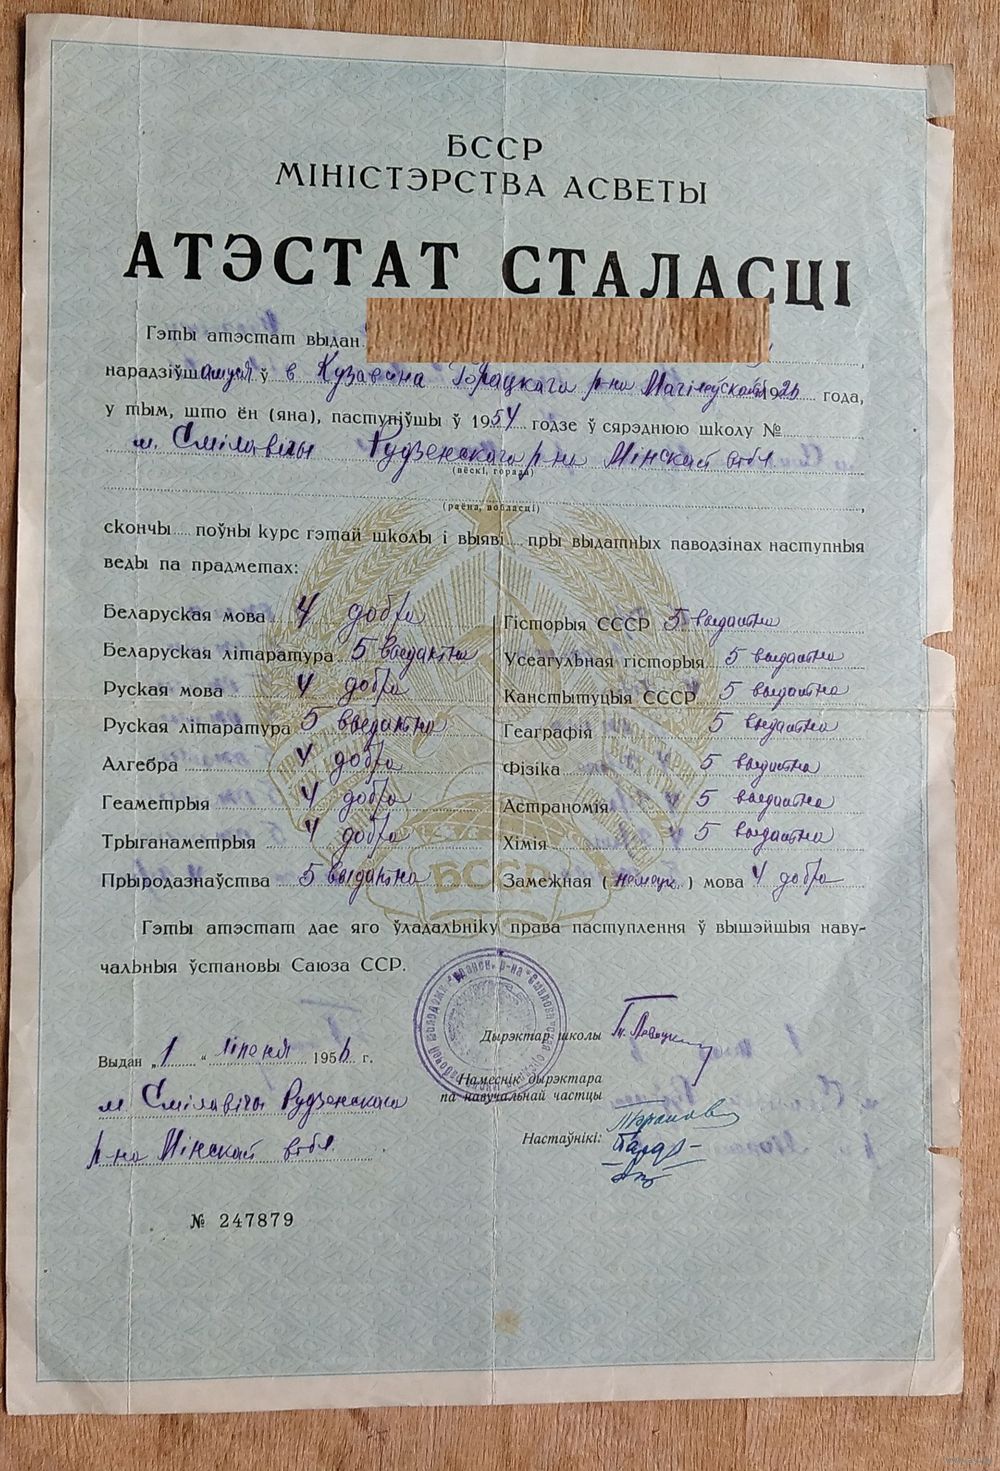 БССР
МІНІСТЭРСТВА АСВЕТЫ
АТЭСТАТ СТАЛАСЦІ
Гэты атэстат выдан
нарадзіўшамуся ў в Кузавіна Горацкага р-на Магілеўскай 1925 года,
у тым, што ён (яна), паступіўшы ў 1954 годзе ў сярэднюю школу №
м. Смілавічы Рудзенскага р-на Мінскай вобл
(вёскі, горада)
(раёна, вобласці)
скончы поўны курс гэтай школы і выяві пры выдатных паводзінах наступныя
веды па прадметах:
Беларуская мова 4 добра
Беларуская літаратура 5 выдатна
Руская мова 4 добра
Руская літаратура 5 выдатна
Алгебра 4 добра
Геаметрыя 4 добра
Трыганаметрыя 4 добра
Прыродазнаўства 5 выдатна
Гісторыя СССР 5 выдатна
Усеагульная гісторыя 5 выдатна
Канстытуцыя СССР 5 выдатна
Геаграфія 5 выдатна
Фізіка 5 выдатна
Астраномія 5 выдатна
Хімія 5 выдатна
Замежная (немецк.) мова 4 добра
БССР
Гэты атэстат дае яго ўладальніку права паступлення ў вышэйшыя наву-
чальныя ўстановы Саюза ССР.
Выдан „1“ ліпеня 1956 г.
м Смілавічы Рудзенскага
р-на Мінскай вобл.
Дырэктар школы
Намеснік дырэктара
па навучальнай частцы
Настаўнікі:
№ 247879